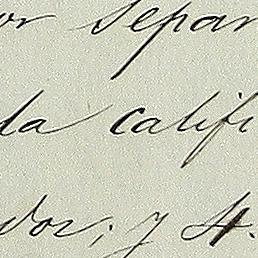 or separ
da califi
dor; y H.